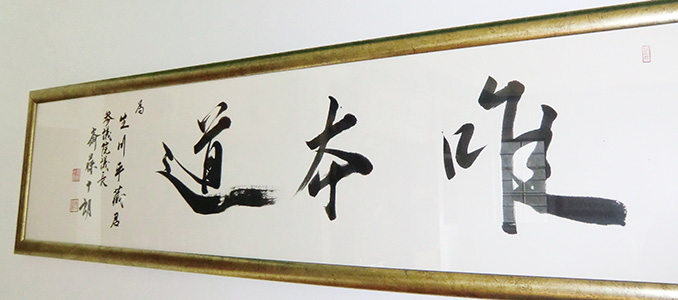 唯本道
為
生川平蔵君
参議院議長
斎藤十朗